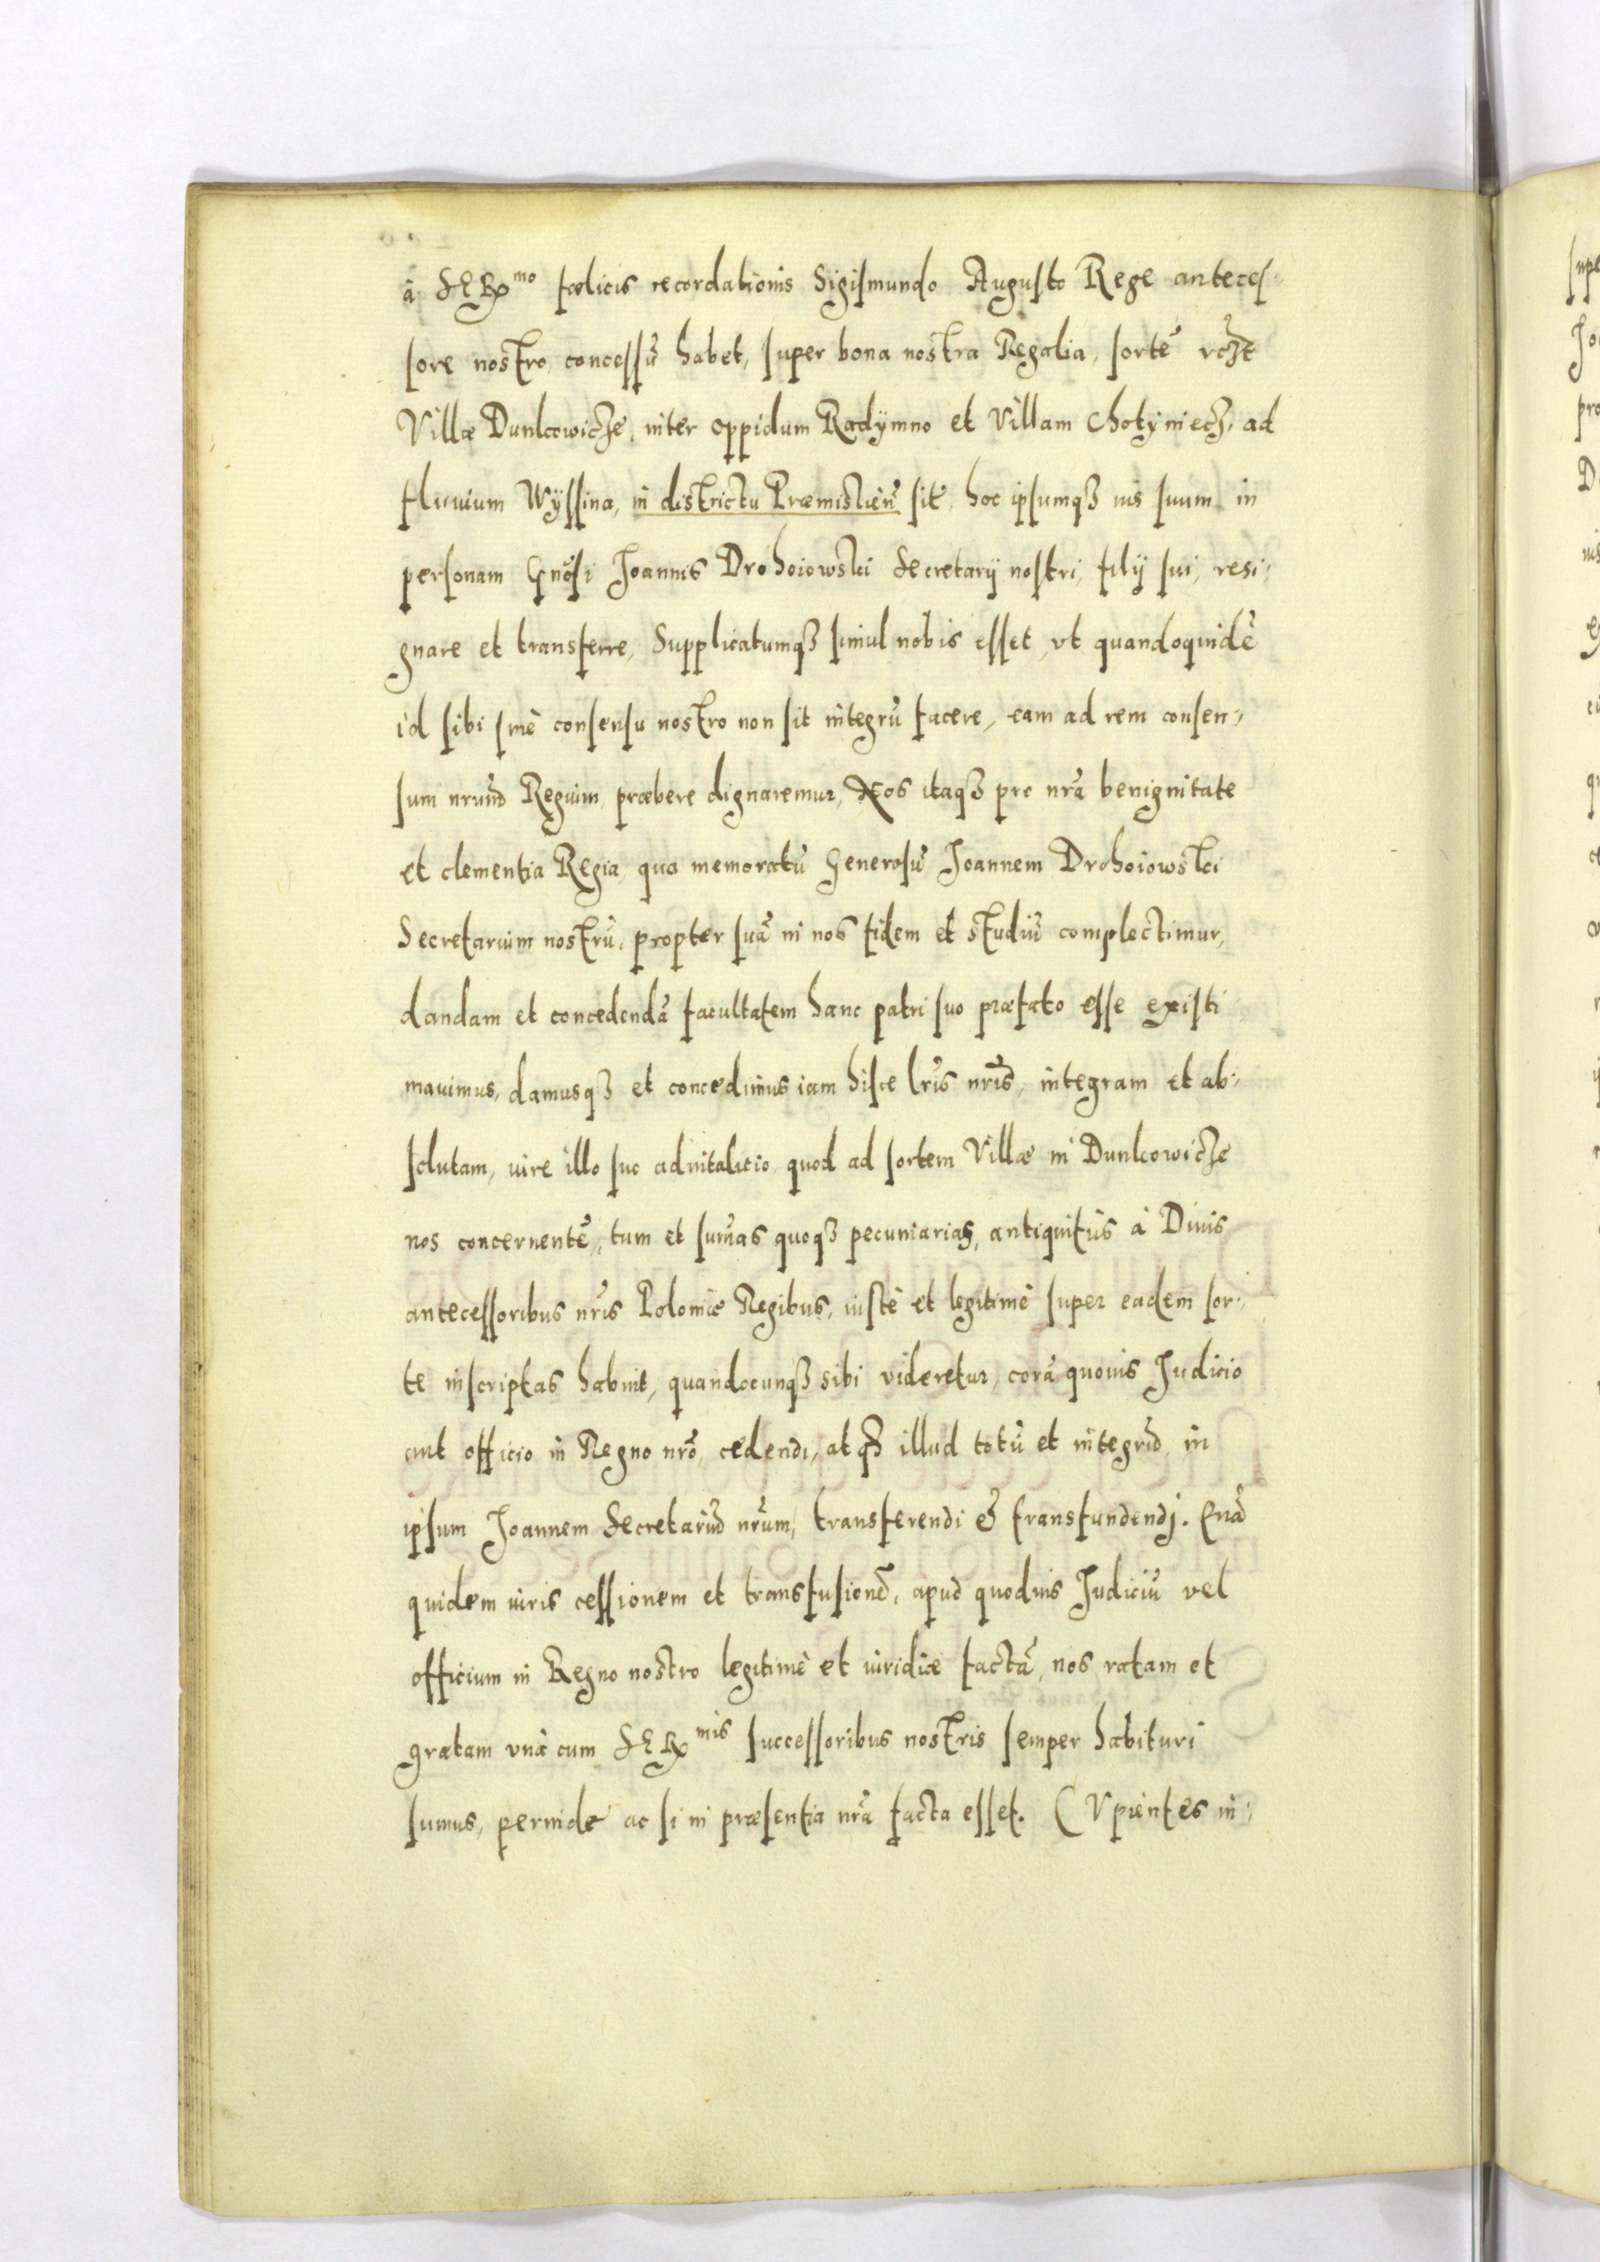 à SER^mo fœlicis recordationis Sigismundo Augusto Rege anteces-
sore nostro, concessũ habet, super bona nostra Regalia, sortẽ
Villæ Dunkowicze, inter oppidum Radÿmno et Villam Chotyniecz, ad
fluuium Wÿssina, in districtu Præmislieñ sit, hoc ipsumqꝫ ius suum in
personam Gnõsi Joannis Drohoiowski Secretarij nostri, filij sui, resi-
gnare et transferre, Supplicatumqꝫ simul nobis esset, vt quandoquidẽ
id sibi sinè consensu nostro non sit integrũ facere, eam ad rem consen-
sum nrũm Regium præbere dignaremur, Nos itaqꝫ pro nrã benignitate
et clementia Regia, qua memoratũ Generosũ Joannem Drohoiowski
Secretarium nostrũ, propter suã in nos fidem et studiũ complectimur,
dandam et concedendã facultatem hanc patri suo præfato esse existi
mauimus, damusqꝫ et concedimus iam hisce lr̃is nr̃is, integram et ab-
solutam, iure illo suo aduitalitio quod ad sortem Villæ in Dunkowicze
nos concernentẽ, tum et sum̃as quoqꝫ pecuniarias, antiquitùs à Diuis
antecessoribus nr̃is Poloniæ Regibus, iustè et legitimè super eadem sor-
te inscriptas habuit, quandocunqꝫ sibi videretur, corã quouis Judicio
aut officio in Regno nrõ, cedendi, atqꝫ illud totũ et integrũ in
ipsum Joannem Secretariũ nrũm, transferendi & transfundendj. Quã
quidem iuris cessionem et transfusionẽ, apud quoduis Judiciũ vel
officium in Regno nostro legitimè et iuridicæ factã, nos ratam et
gratam vnà cum SER^mis successoribus nostris semper habituri
sumus, perinde ac si in præsentia nrã facta esset. CVpientes in-